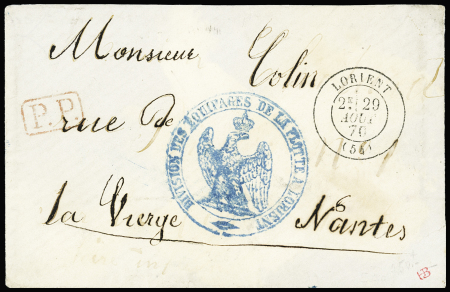 Monsieur Colin
rue De
la Vierge Nantes
P.P.
LORIENT
2E 29
AOUT
70
(54)
DIVISION DES EQUIPAGES DE LA FLOTTE A LORIENT